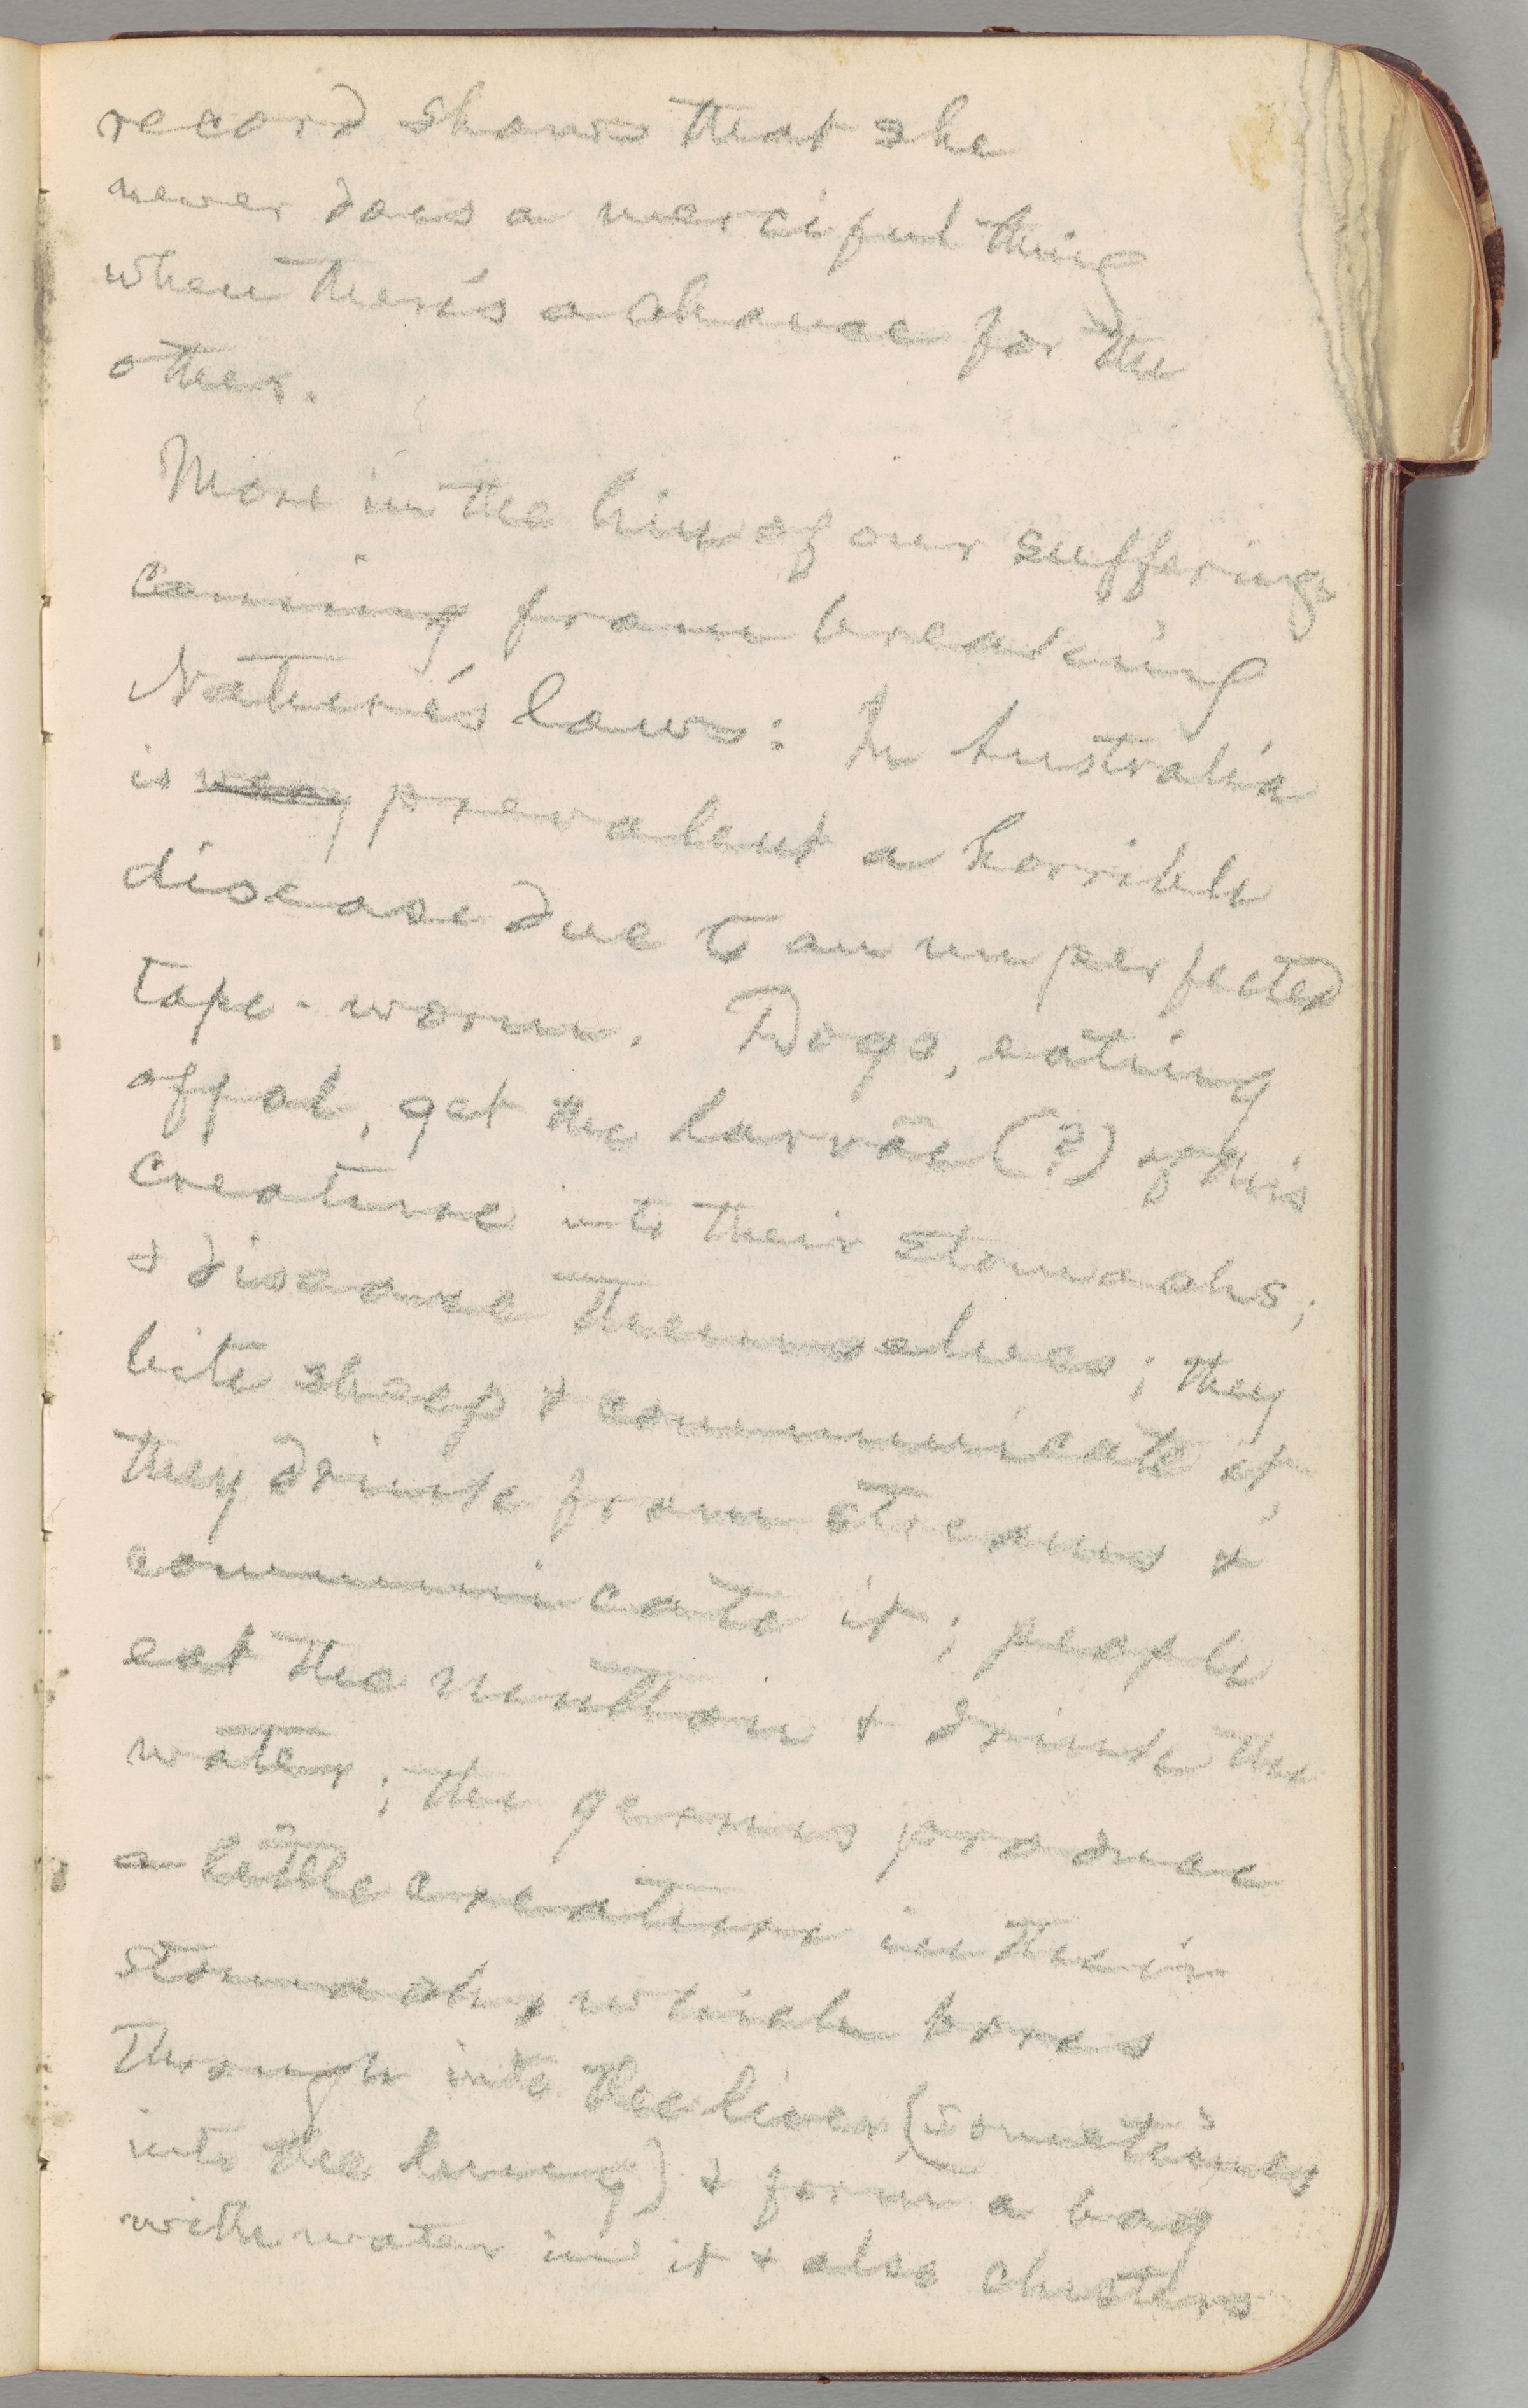 record shows that she
never does a merciful thing
when there's a chance for the
other.
More in the line of our sufferings
coming from breaking
Nature's laws: In Australia
is prevalent a horrible
disease due to an unperfected
tape-worm. Dogs, eating
offal, get the larvae (?) of this
creature into their stomachs;
& disease themselves; they
bite sheep & communicate it;
they drink from streams &
communicate it; people
eat the mutton & drink the
water; the germs produce
a little creature in their
stomachs which bores
through into the liver (sometimes
into the lung) & form a bag
with water in it & also clusters